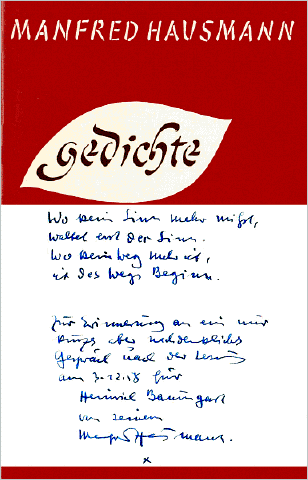 MANFRED HAUSMANN
gedichte
Wo kein Sinn mehr mißt,
waltet erst der Sinn.
Wo kein Weg mehr ist,
ist des Wegs Beginn.
Zur Erinnerung an ein nur
kurzes aber nachdenkliches
Gespräch nach der Lesung
am 3.12.58 für
Heinrich Baumgart
von seinem
Manfred Hausmann.
x